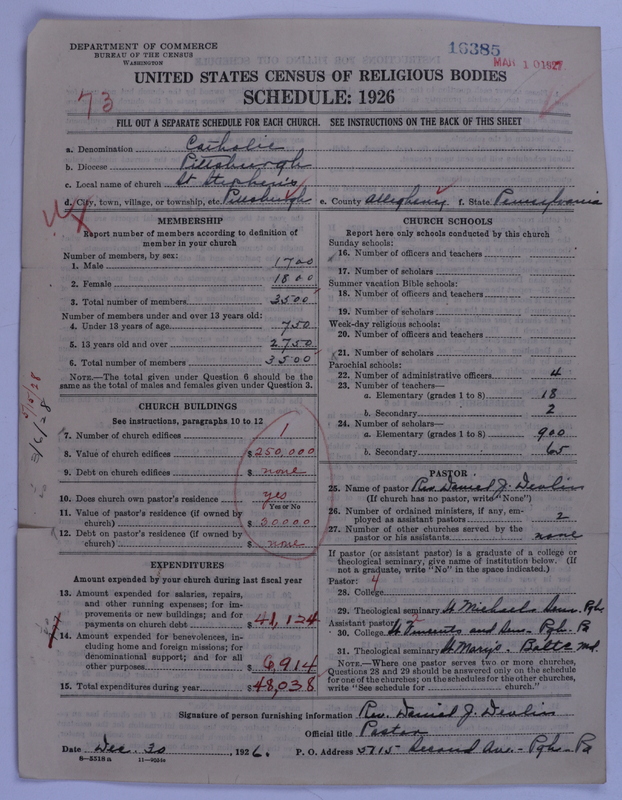 DEPARTMENT OF COMMERCE
BUREAU OF THE CENSUS
WASHINGTON
16385
MAR 10 1927
UNITED STATES CENSUS OF RELIGIOUS BODIES
SCHEDULE: 1926
73
FILL OUT A SEPARATE SCHEDULE FOR EACH CHURCH. SEE INSTRUCTIONS ON THE BACK OF THIS SHEET
a. Denomination Catholic
b. Diocese Pittsburgh
c. Local name of church St Stephen's
d. City, town, village, or township, etc. Pittsburgh e. County Allegheny f. State Pennsylvania
MEMBERSHIP
Report number of members according to definition of
member in your church
Number of members, by sex:
1. Male 1700
2. Female 1800
3. Total number of members 3500
Number of members under and over 13 years old:
4. Under 13 years of age 750
5. 13 years old and over 2750
6. Total number of members 3500
NOTE.—The total given under Question 6 should be the
same as the total of males and females given under Question 3.
CHURCH BUILDINGS
See instructions, paragraphs 10 to 12
7. Number of church edifices 1
8. Value of church edifices $250,000
9. Debt on church edifices $ none
10. Does church own pastor's residence yes
Yes or No
11. Value of pastor's residence (if owned by
church) $ 30000
12. Debt on pastor's residence (if owned by
church) $ none
EXPENDITURES
Amount expended by your church during last fiscal year
13. Amount expended for salaries, repairs,
and other running expenses; for im-
provements or new buildings; and for
payments on church debt $41,124
14. Amount expended for benevolences, in-
cluding home and foreign missions; for
denominational support; and for all
other purposes $6,914
15. Total expenditures during year $48,038
CHURCH SCHOOLS
Report here only schools conducted by this church
Sunday schools:
16. Number of officers and teachers
17. Number of scholars
Summer vacation Bible schools:
18. Number of officers and teachers
19. Number of scholars
Week-day religious schools:
20. Number of officers and teachers
21. Number of scholars
Parochial schools:
22. Number of administrative officers 4
23. Number of teachers—
a. Elementary (grades 1 to 8) 18
b. Secondary 2
24. Number of scholars—
a. Elementary (grades 1 to 8) 900
b. Secondary 65
PASTOR
25. Name of pastor Rev. Daniel J. Devlin
(If church has no pastor, write "None")
26. Number of ordained ministers, if any, em-
ployed as assistant pastors 2
27. Number of other churches served by the
pastor or his assistants none
If pastor (or assistant pastor) is a graduate of a college or
theological seminary, give name of institution below. (If
not a graduate, write "No" in the space indicated.)
Pastor: 4
28. College
29. Theological seminary St Michaels Sem. Pgh.
Assistant pastor: 2
30. College St Vincents and Sem - Pgh. Pa
31. Theological seminary St Mary's. Balto Md.
NOTE.—Where one pastor serves two or more churches,
Questions 28 and 29 should be answered only on the schedule
for one of the churches; on the schedules for the other churches,
write "See schedule for church."
Signature of person furnishing information Rev. Daniel J. Devlin
Official title Pastor
Date Dec. 30, 1926. P. O. Address 5715 Second Ave. - Pgh - Pa
8—5518 a